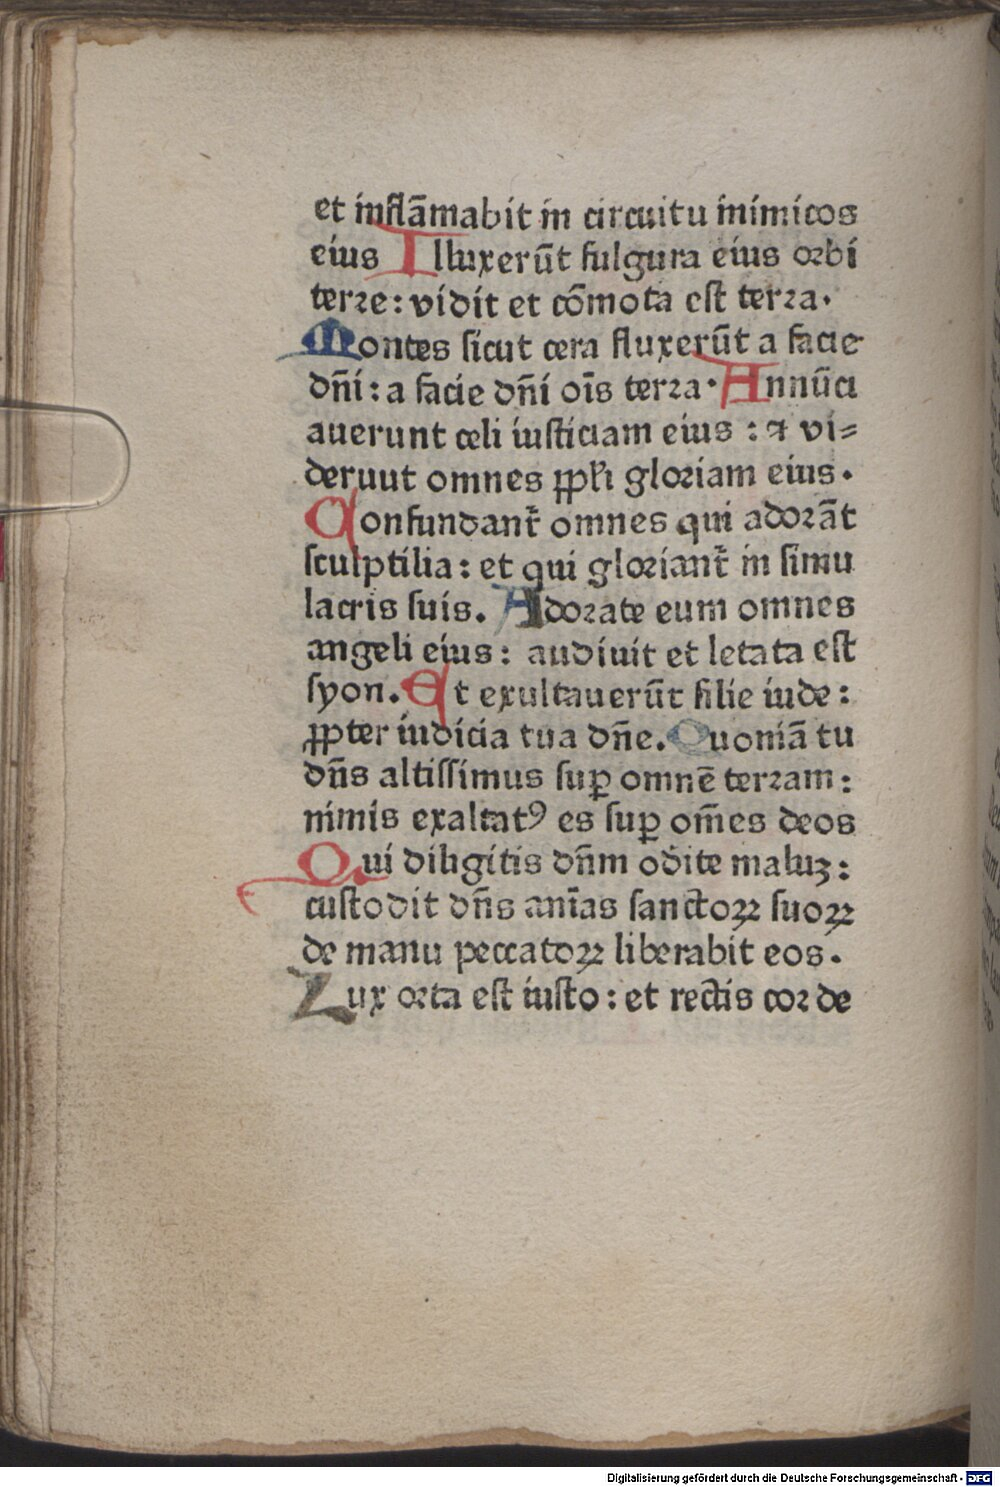 et inflāmabit in circuitu inimicos
eius Illuxerūt fulgura eius orbi
terre: vidit et cōmota est terra.
Montes sicut cera fluxerūt a facie
dn̄i: a facie dn̄i oīs terra. Annūci
auerunt celi iusticiam eius : ⁊ vi⸗
deruut omnes ꝓpl'i gloriam eius.
Confundant᷑ omnes qui adorāt
sculptilia: et qui gloriant᷑ in simu
lacris suis. Adorate eum omnes
angeli eius: audiuit et letata est
syon. Et exultauerūt filie iude:
ꝓpter iudicia tua dn̄e. Quoniā tu
dn̄s altissimus suꝑ omnē terram:
nimis exaltatꝰ es suꝑ om̄es deos
Qui diligitis dn̄m odite maluꝫ:
custodit dn̄s aīas sanctoꝝ suoꝝ
de manu peccatoꝝ liberabit eos.
Lux orta est iusto: et rectis corde
Digitalisierung gefördert durch die Deutsche Forschungsgemeinschaft - DFG